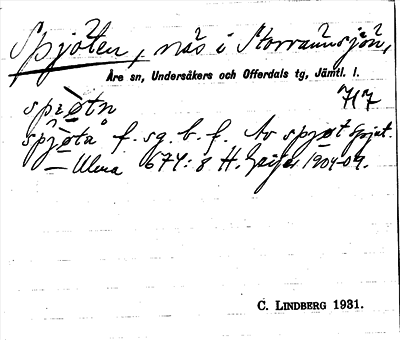 Spjöten, näs i Storrännsjön,
Åre sn, Undersåkers och Offerdals tg, Jämtl. l.
747
spɪøtn
spjøta f. sg. b. f. Av spjøt spjut.
— Ulma 674:8 H. Geijer 1904-07.
C. LINDBERG 1931.